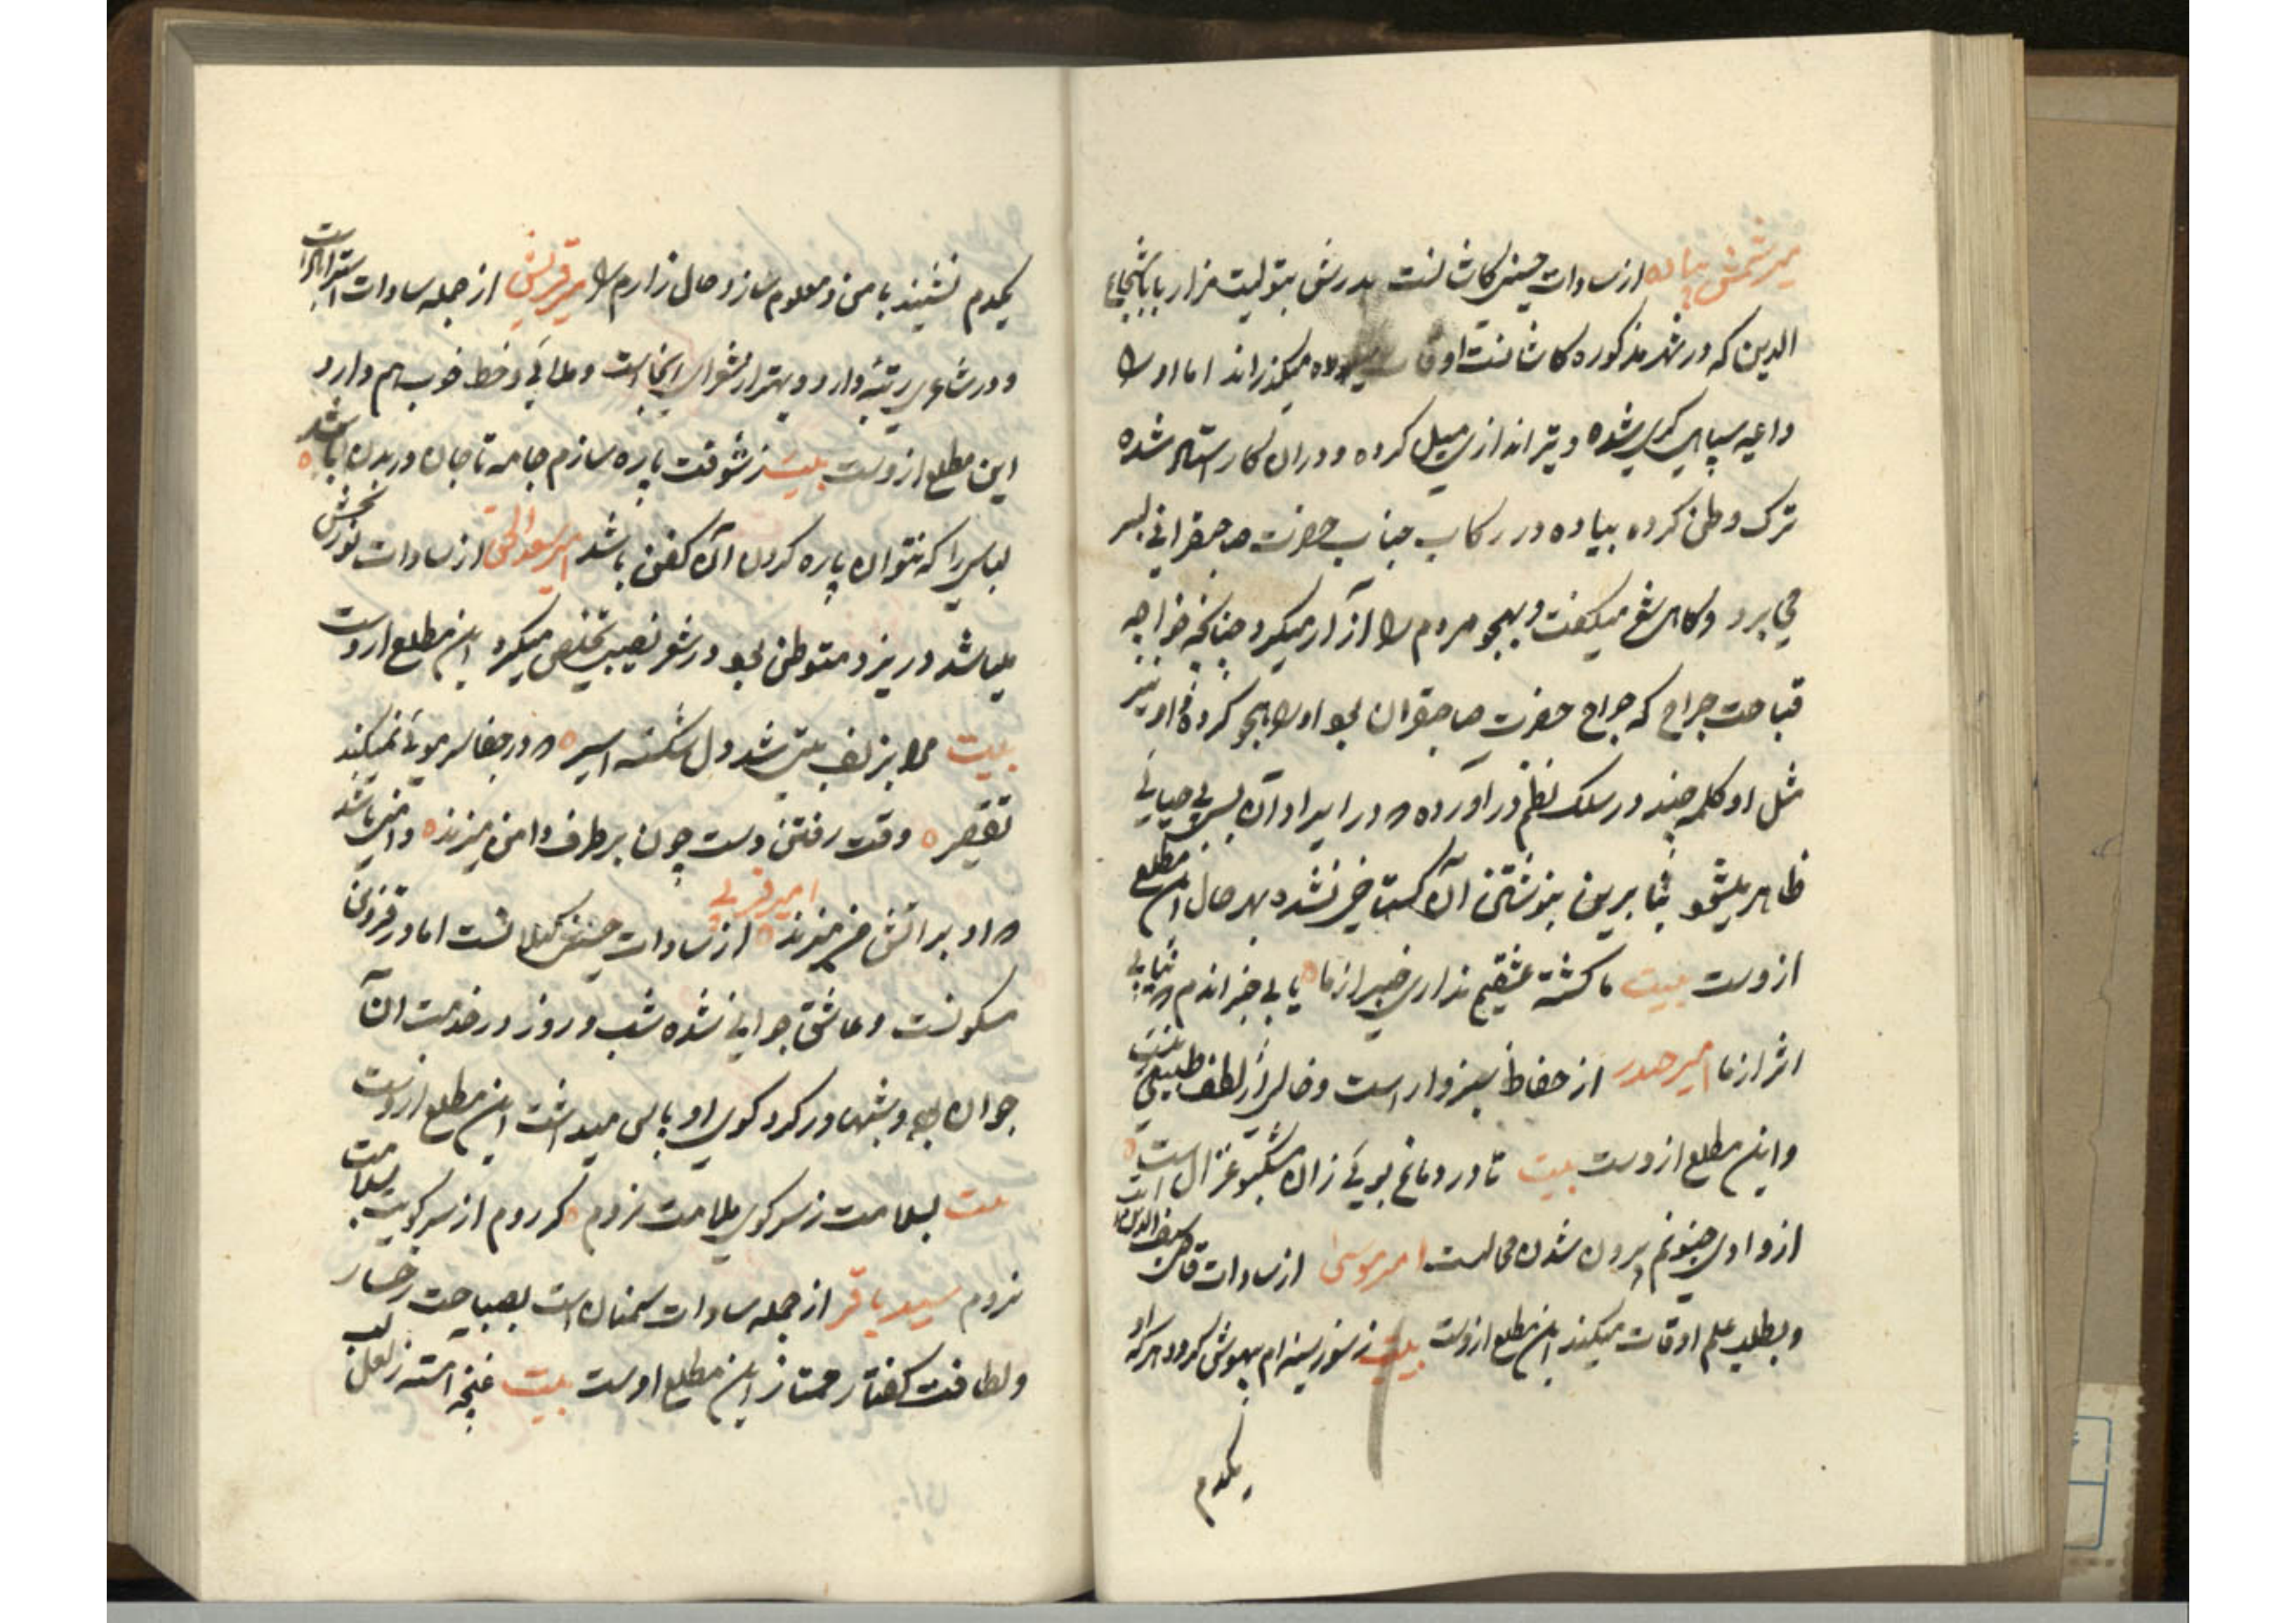 میر شمس پیاده از سادات حسینی کاشانست پدرش بتولیت مزار بابا شجاع
الدین که در شهر مذکوره کاشانست اوقات میگذراند اما او را
داعیه سپاهی گری شده و تیر اندازی میل کرده و در آن کار استاد شده
ترک وطن کرده پیاده در رکاب جناب حضرت صاحبقرانی بسر
می برد و گاهی شعر میگفت و بهجو مردم را آزار میکرد چنانکه خواجه
قباحت جراح که جراح حضرت صاحبقران بود او را هجو کرده و او نیز
مثل او کلمه چند در سلک نظم در آورده و در ایراد آن بسی بی حیائی
ظاهر میشود بنا برین بنوشتن آن گستاخی نشد بهر حال این مطلع
ازوست بیت ما کشته عشقیم نداری خبر از ما یا بی خبر اندم که نیابی
اثر از ما امیر صدر از حفاظ سبزوار است و خالی از لطف طبیعی نیست
و این مطلع ازوست بیت تا در دماغ بویی زان مشکبو غزال است
از وادی جنونم بیرون شدن محالست امیر موسی از سادات قاضی سیف الدین است
و بطلب علم اوقات میکند این مطلع ازوست بیت ز سوز سینه ام بیهوش گردد هر که او
یکدم
یکدم نشیند با من و معلوم سازد حال زارم را میر قریشی از جمله سادات استراباد است
و در شاعری رتبه دارد و بهتر از شعرای اینجاست و ملائی و خط خوب هم دارد
این مطلع ازوست بیت ز شوقت پاره سازم جامه تا جان در بدن باشد
لباسی را که نتوان پاره کردن آن کفن باشد امیر سعد الحق از سادات نوربخش
میباشد در یزد متوطن بود در شعر نصیبی تخلص میکرد این مطلع ازوست
بیت مرا بزلف بتی شد دل شکسته اسیر که در جفا سر مویی نمیکند
تقصیر وقت رفتن دوست چون بر طرف دامن میزند دامنی باشد
که او بر آتش من میزند امیر قربی از سادات حسینی گیلانست اما در قزوین
مسکونست و عاشق جوانی شده شب و روز در خدمت آن
جوان بود و شبها در گرد کوی او پاس میداشت این مطلع ازوست
بیت بسلامت ز سر کوی ملامت نروم گر روم از سر کویت بسلامت
نروم سید باقر از جمله سادات سمنان است بصباحت رخسار
و لطافت گفتار ممتاز این مطلع اوست بیت غنچه آهسته ز لعل لب